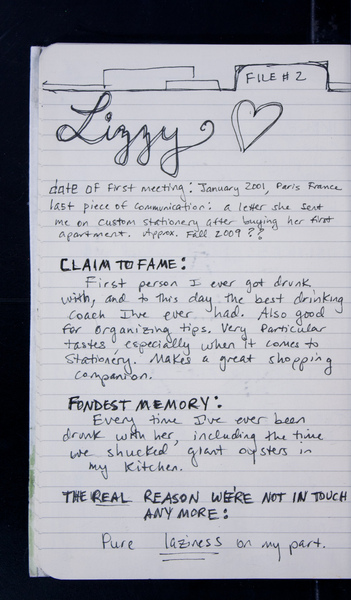 FILE # 2
Lizzy
date of first meeting: January 2001, Paris France
last piece of communication: a letter she sent
me on custom stationery after buying her first
apartment. Approx. Fall 2009 ??
CLAIM TO FAME:
First person I ever got drunk
with, and to this day the best drinking
coach I've ever had. Also good
for organizing tips. Very particular
tastes, especially when it comes to
Stationery. Makes a great shopping
companion.
FONDEST MEMORY:
Every time I've ever been
drunk with her, including the time
we shucked giant oysters in
my kitchen.
THE REAL REASON WE'RE NOT IN TOUCH
ANY MORE:
Pure laziness on my part.